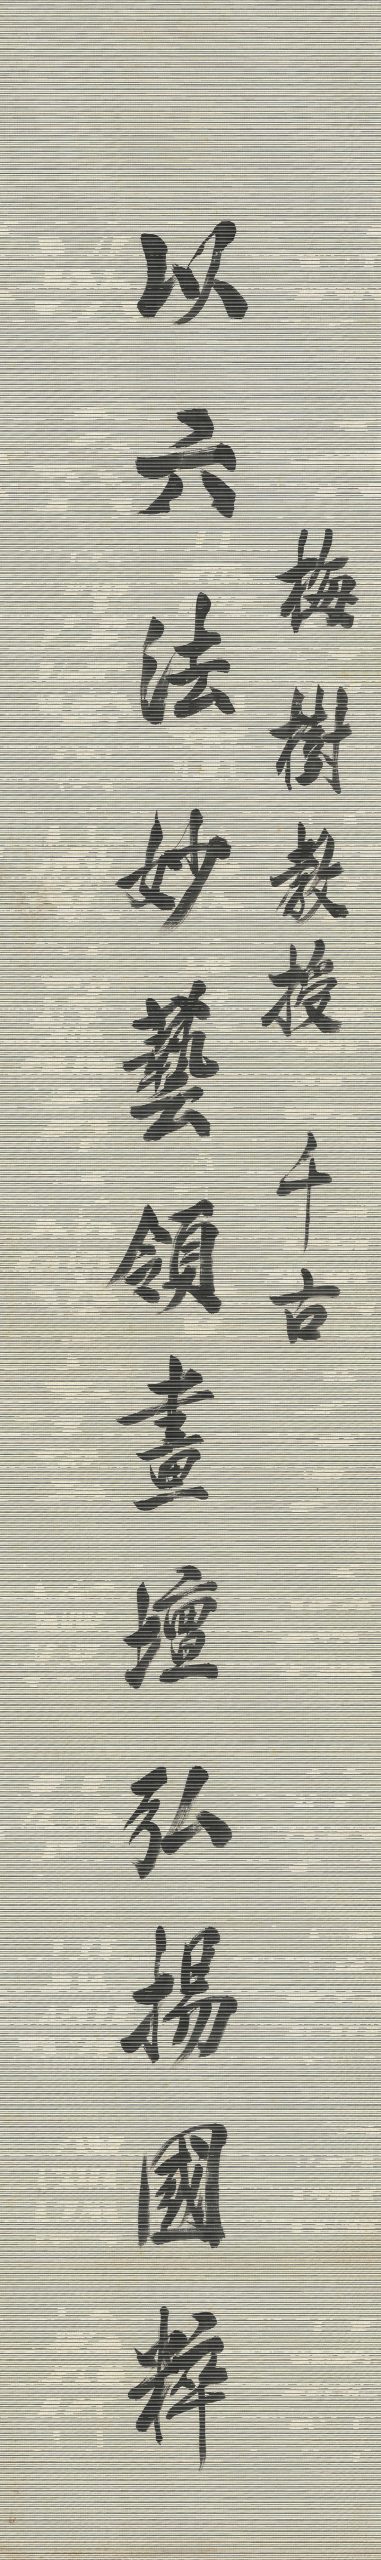 梅樹教授 千古
以六法妙藝領畫壇弘揚國粹